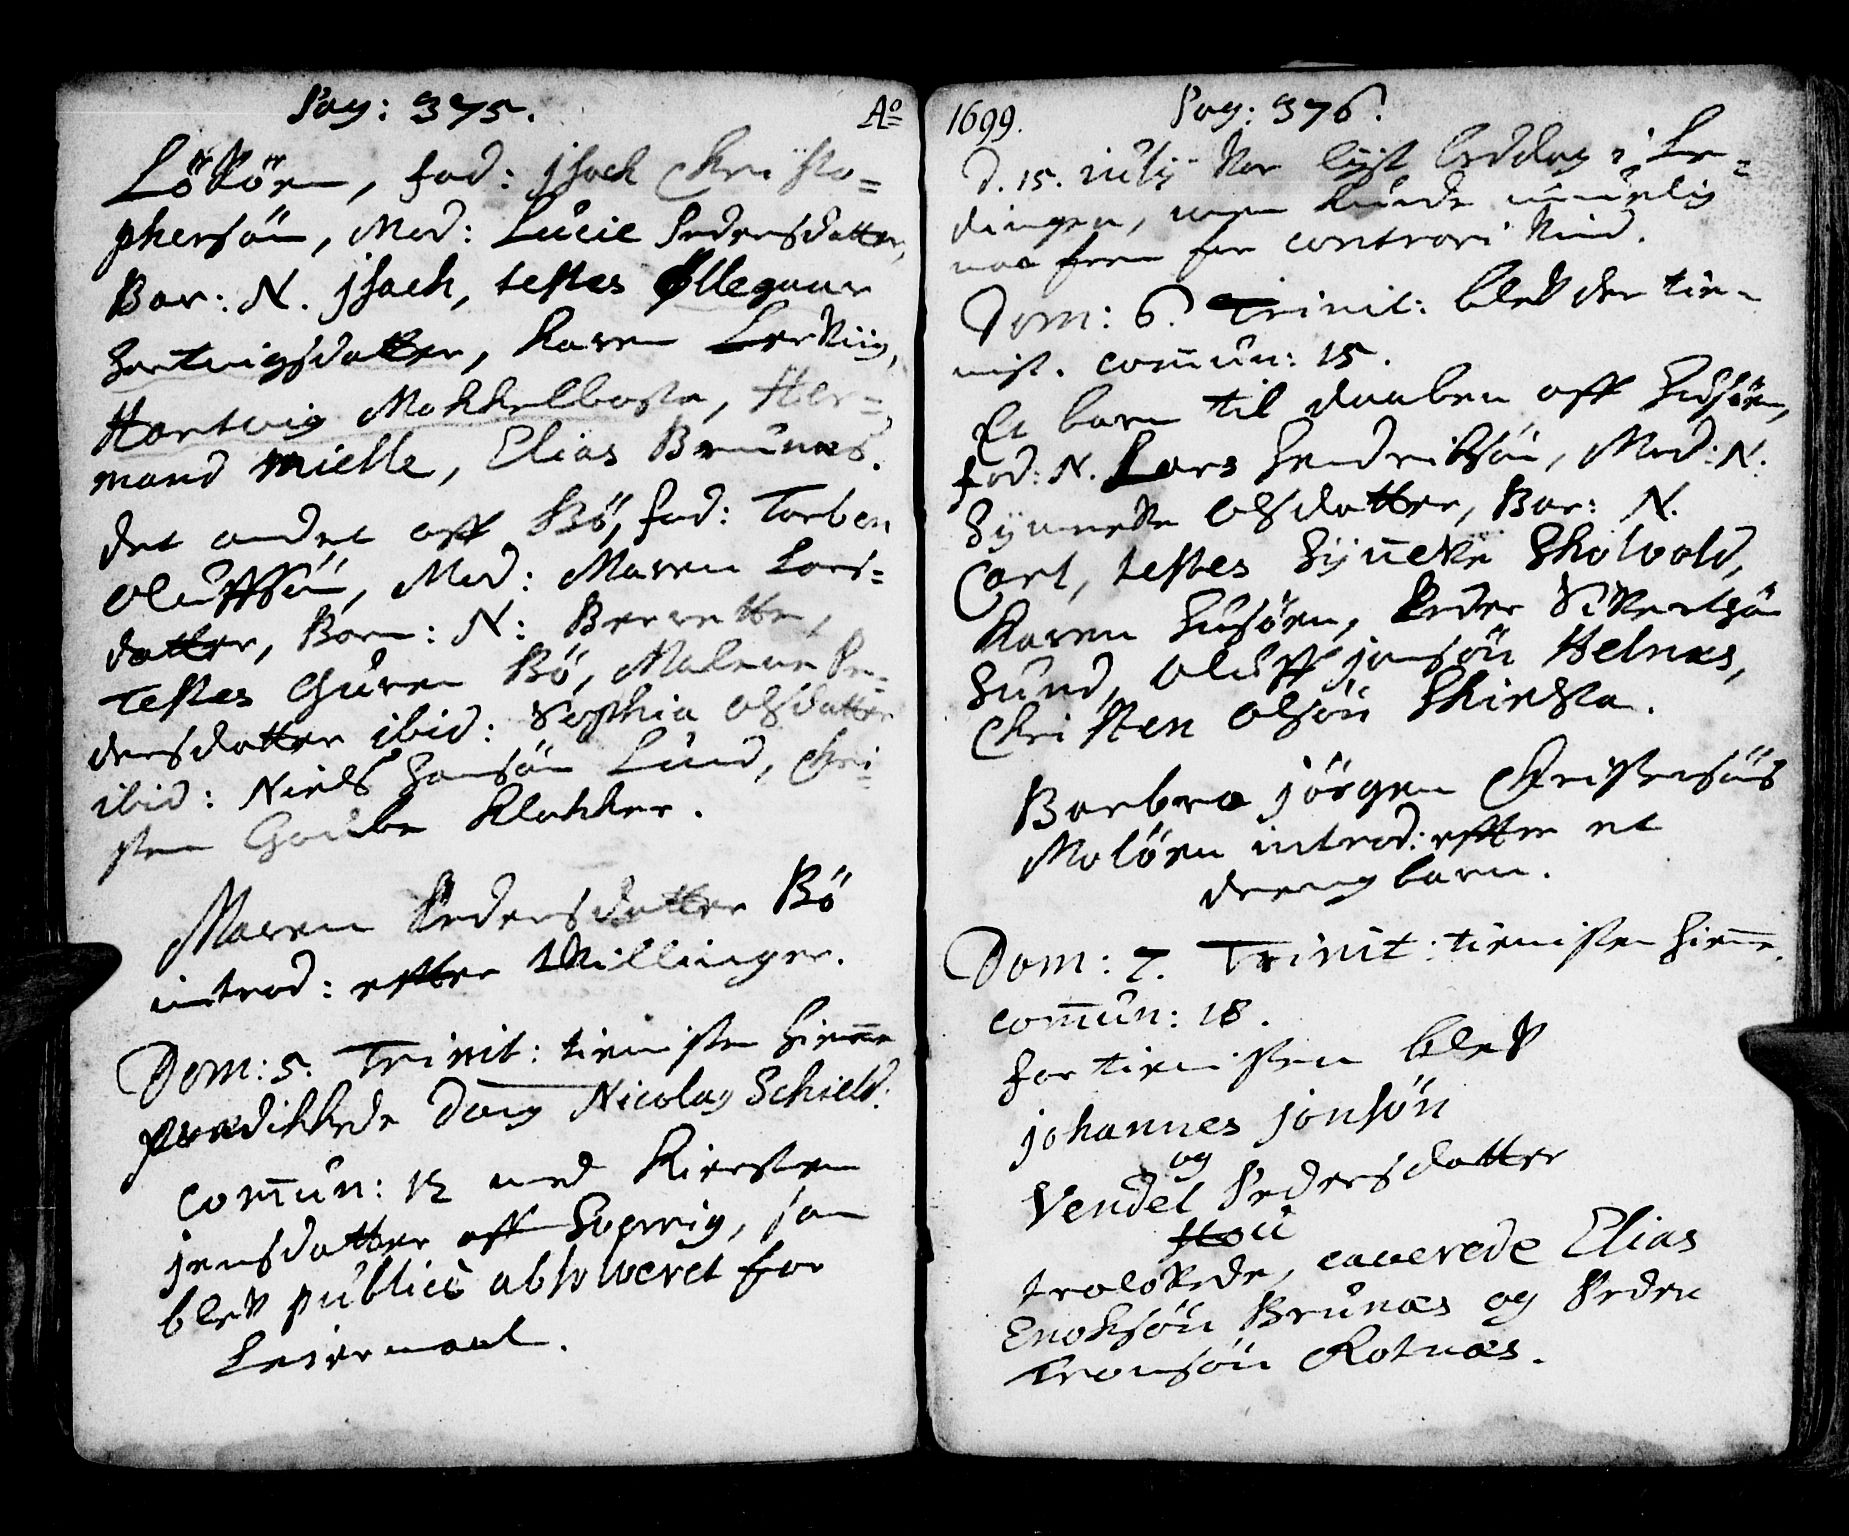 Pag: 375. Aº
Lököen, fad: jsach Christo=
phersön, Mod: Lucie Pedersdatter,
Bar: N. jsach, testes Øllegaar
Hartvigsdatter, Karen Lerviig,
Hartvig Mokkelboste, Her=
mand mielle, Elias Brunæs.
det andet aff Bö, fad: Torben
Oluffsön, Mod: Maren Lars=
datter, Barn: N: Berrette,
Testes Guren Bö, Malene Pe=
dersdatter ibid: Sophia Olsdatter
ibid: Niels Hansön Lund, Chri=
sten Klokker.
Maren Pedersdatter Bö
introd: effter tvillinger.
Dom: 5. Trinit: tienisten hieme
prædikkede Nicolay Schield.
com̄un: 12 med Kiersten
jensdatter aff Sopvig, som
blev publicè absolveret for
Leiermaal.
1699. Pag: 376.
D. 15. julij var lyst leddag i Le=
dingen, men kunde umuelig
naa frem for contrari vind.
Dom: 6. Trinit: blev der tie=
nist. com̄un: 15.
Et barn til daaben aff Husöen,
fad: N. Lars Hendriksön, Mod: N.
Synneve Olsdatter, Bar: N.
Carl, testes Synneve Skolvold,
Karen Husöen, Peder Sivertsön
Sund, Oluff jonsön Helnæs,
Christen Olsön Skielsta.
Barbra jörgen Christensöns
Molöen introd: effter et
drengbarn.
Dom: 7. Trinit: tienisten hiem̄e.
com̄un: 18.
for tienisten blev
johannes jonsön
og
Vendel Pedersdatter
Hou
trolovede, caverede Elias
Enoksön Brunæs og Peder
Tronsön Rotnæs.